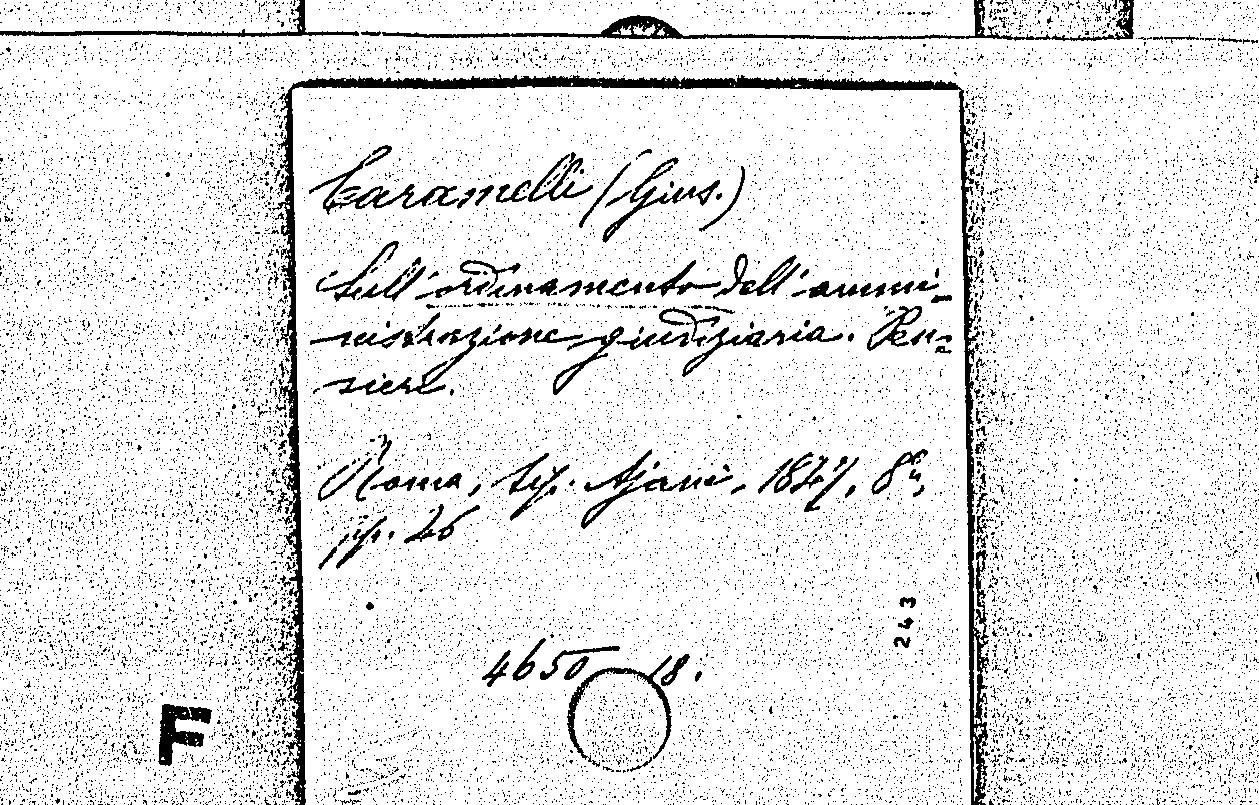 Caramelli (Gius.)
Sull'ordinamento dell'ammi-
nistrazione giudiziaria. Pen-
sieri.
Roma, tip. Ajani, 1874, 8º,
pp. 26
243
4650 18.
F